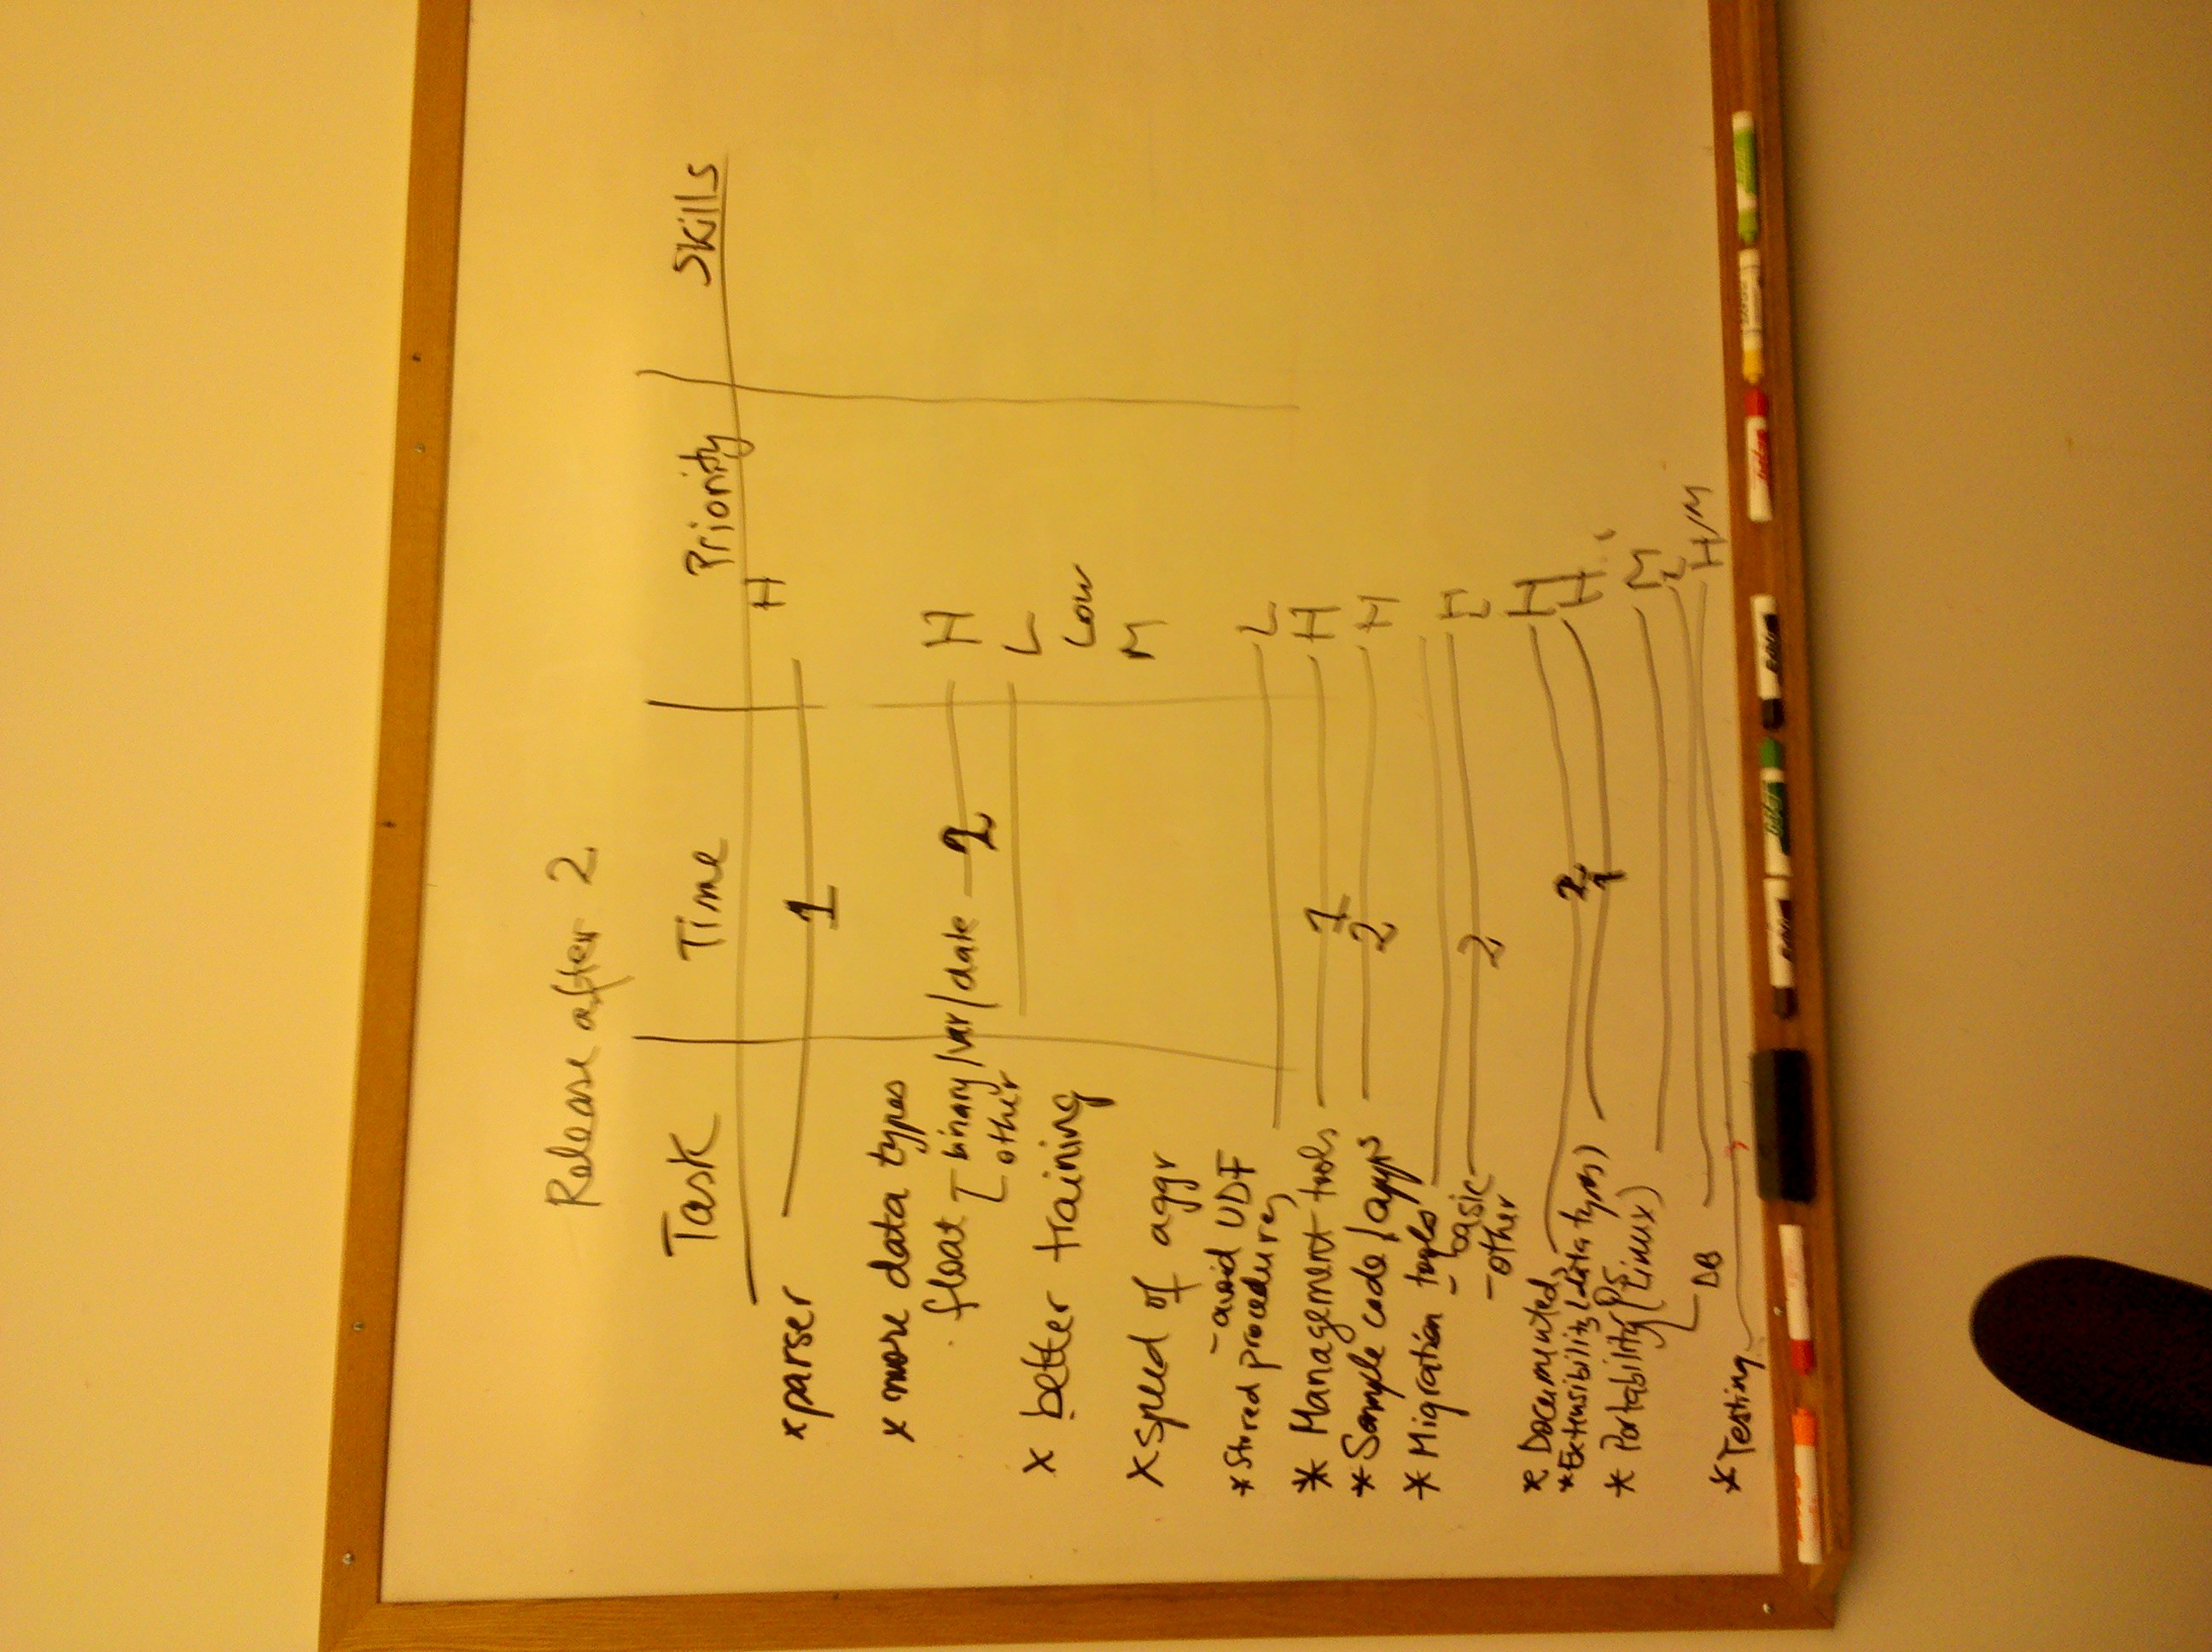 Release after 2
Task Time Priority Skills
H
x parser 1
x more data types
float - binary/var/date 2 H
- other L
x better training
Low
x speed of aggr M
- avoid UDF
* Stored procedures L
* Management tools 1 H
* Sample code/apps 2 H
* Migration tools
- basic 2 H
- other L
* Documented 2 H
* Extensibility (data types) 1 H
* Portability (OS Linux) M
L
DB H/M
* Testing